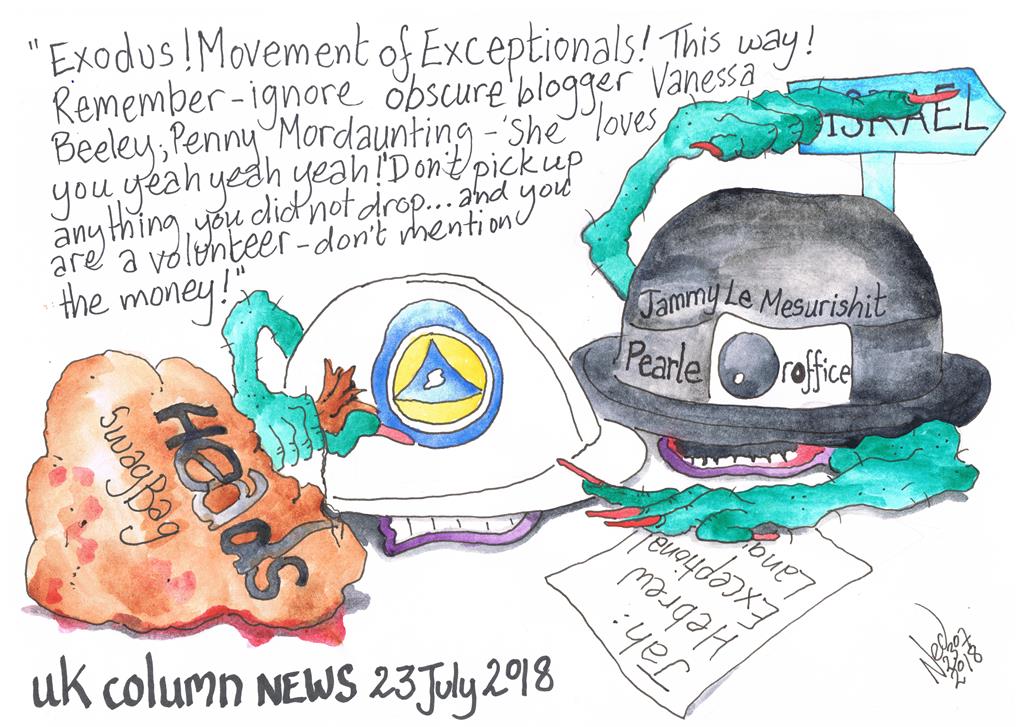 "Exodus! Movement of Exceptionals! This way!
Remember-ignore obscure blogger Vanessa
Beeley, Penny Mordaunting-'She loves
you yeah yeah yeah!' Don't pick up
anything you did not drop... and you
are a volunteer-don't mention
the money!"
ISRAEL
Jammy Le Mesurishit
Pearle
roffice
Heads
SwagBag
Jah:
Hebrew
Exceptional
uk column NEWS 23 July 2018
2018